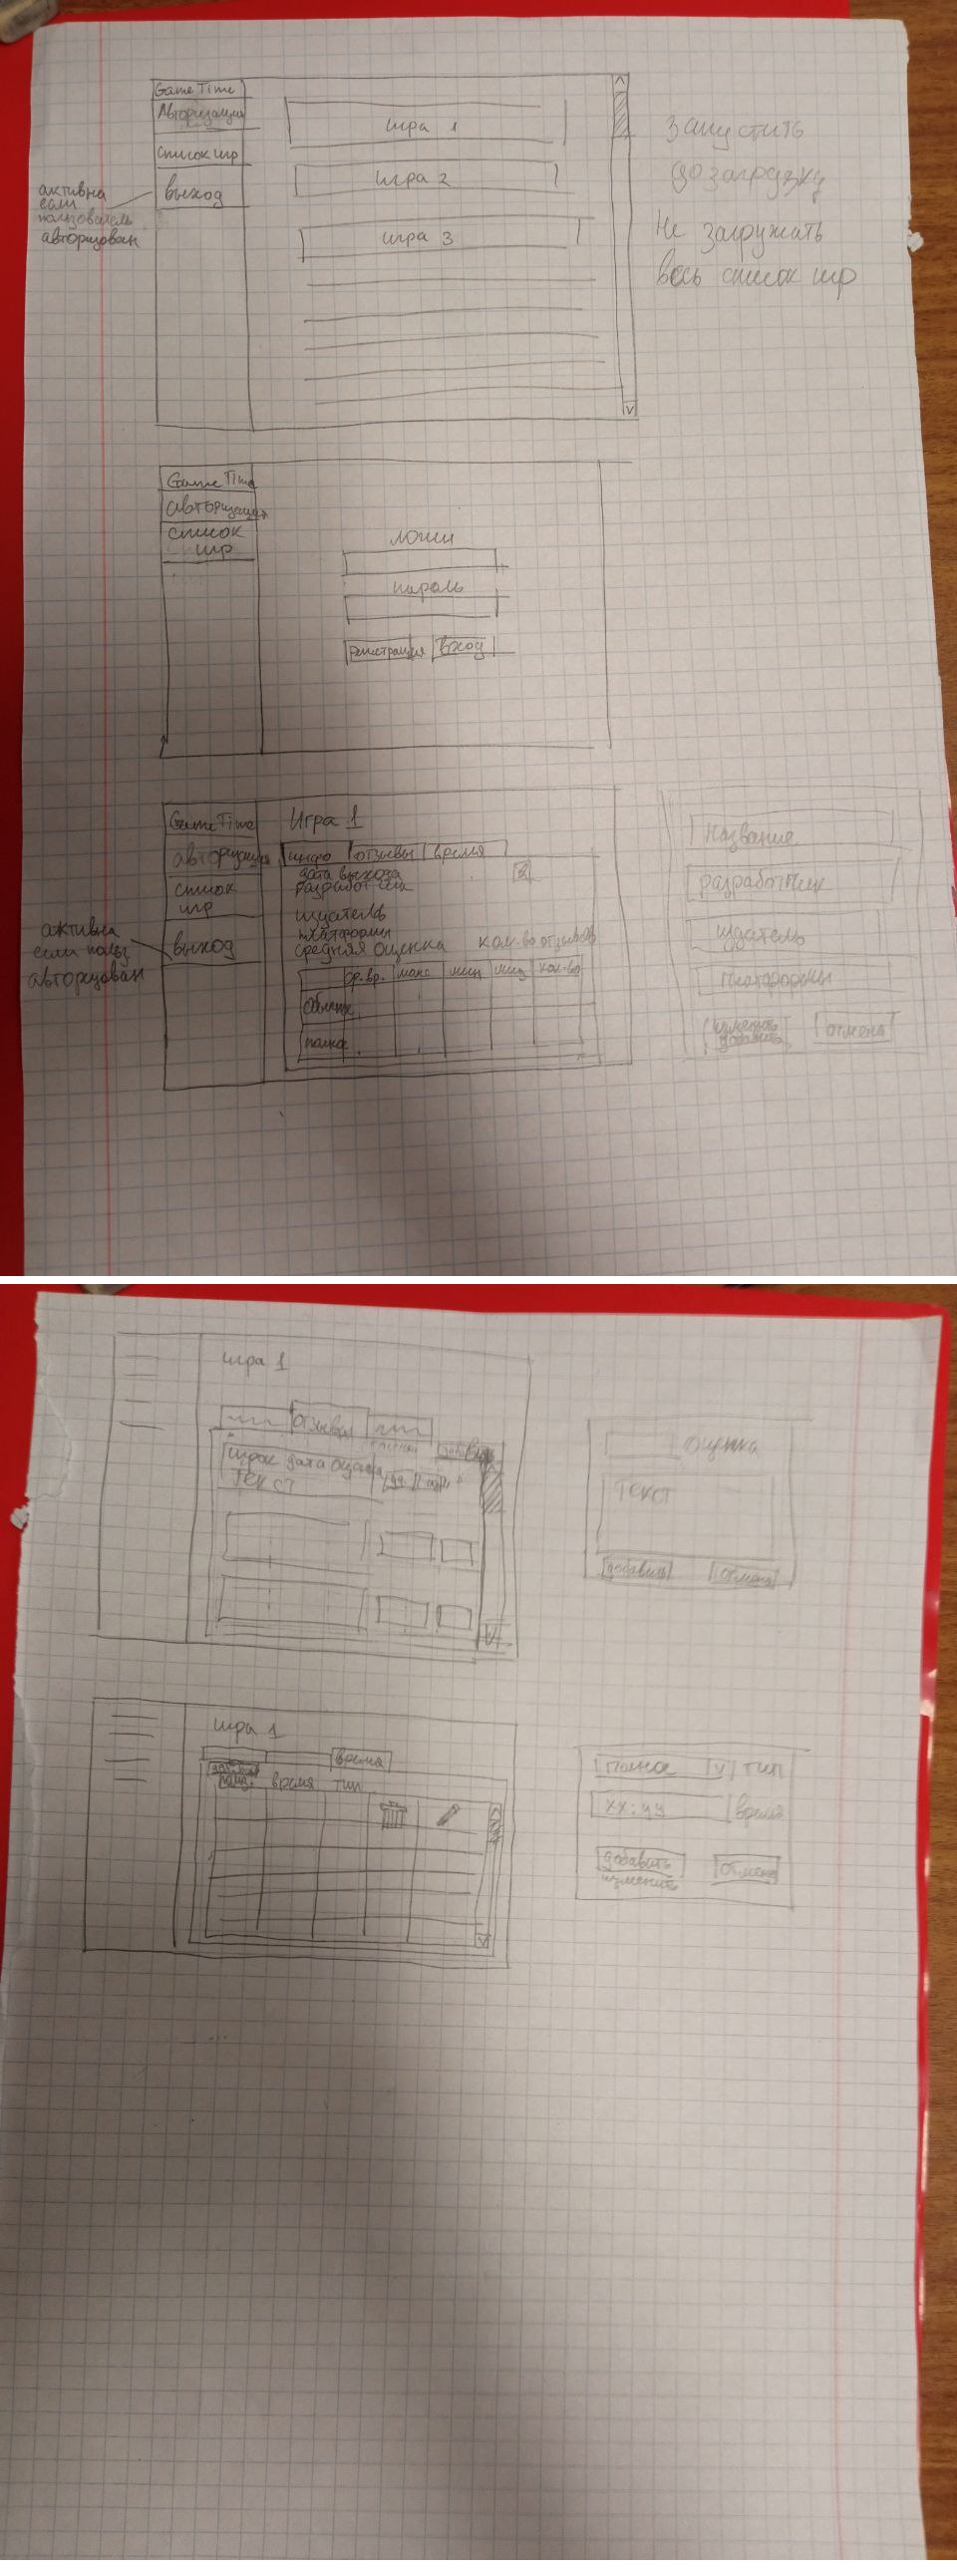 Game Time
Авторизация
список игр
выход
активна
если
пользователь
авторизован
игра 1
игра 2
игра 3
запустить
дозагрузку
Не загружать
весь список игр
Game Time
авторизация
список
игр
логин
пароль
регистрация вход
Game Time
авторизация
список
игр
выход
активна
если польз
авторизован
Игра 1
инфо отзывы время
дата выхода
разработчик
издатель
платформы
средняя оценка кол-во отзывов
ср. вр. макс мин кол-во
обычное
полное
Название
разработчик
издатель
платформы
изменить
добавить
отмена
игра 1
отзывы
игрок дата оценка
текст
оценка
текст
добавить отмена
игра 1
время
время тип
полное v тип
xx:yy время
добавить
изменить
отмена